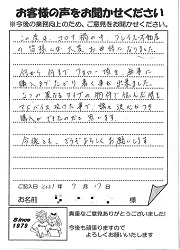 お客様の声をお聞かせください
※今後の業務向上のため、ご意見をお聞かせください。
この度は、コロナ禍の中 プレイス不動産
の皆様には大変お世話になりました。
何から何までフォロー頂き無事に
購入までたどり着く事が出来ました。
アドバイス頂けた事で
購入ができたのだと思います。
今後とも、どうぞよろしくお願いします
ご記入日 2021年 7月 17日
お名前
Since
1979
貴重なご意見ありがとうございました!
今後も頑張りますので
よろしくお願いいたします